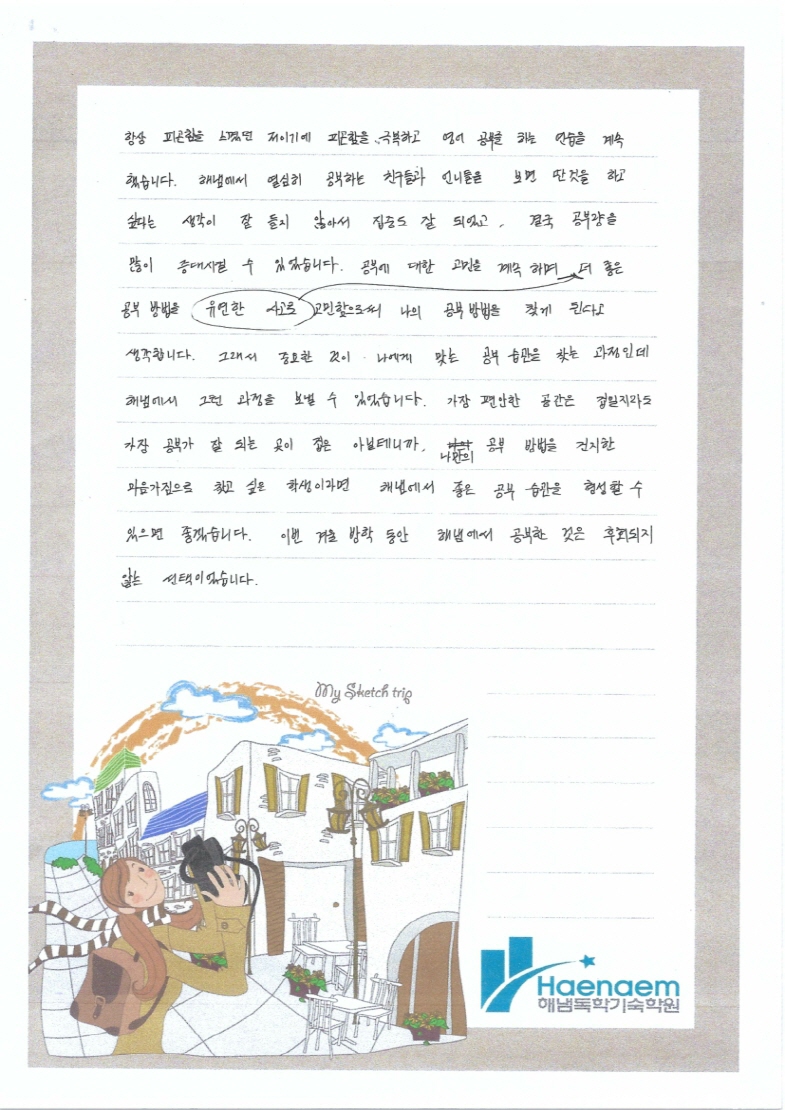 항상 피곤함을 느꼈던 저이기에 피곤함을 극복하고 영어 공부를 하는 연습을 계속
했습니다. 해냄에서 열심히 공부하는 친구들과 언니들을 보면 딴것을 하고
싶다는 생각이 잘 들지 않아서 집중도 잘 되었고, 결국 공부량을
많이 증대시킬 수 있었습니다. 공부에 대한 고민을 계속 하며 더 좋은
공부 방법을 유연한 사고로 고민함으로써 나의 공부 방법을 찾게 된다고
생각합니다. 그래서 중요한 것이 나에게 맞는 공부 습관을 찾는 과정인데
해냄에서 그런 과정을 보낼 수 있었습니다. 가장 편안한 공간은 집일지라도
가장 공부가 잘 되는 곳이 집은 아닐테니까, 나만의 공부 방법을 진지한
마음가짐으로 찾고 싶은 학생이라면 해냄에서 좋은 공부 습관을 형성할 수
있으면 좋겠습니다. 이번 겨울 방학 동안 해냄에서 공부한 것은 후회되지
않는 선택이었습니다.
My Sketch trip
Haenaem
해냄독학기숙학원